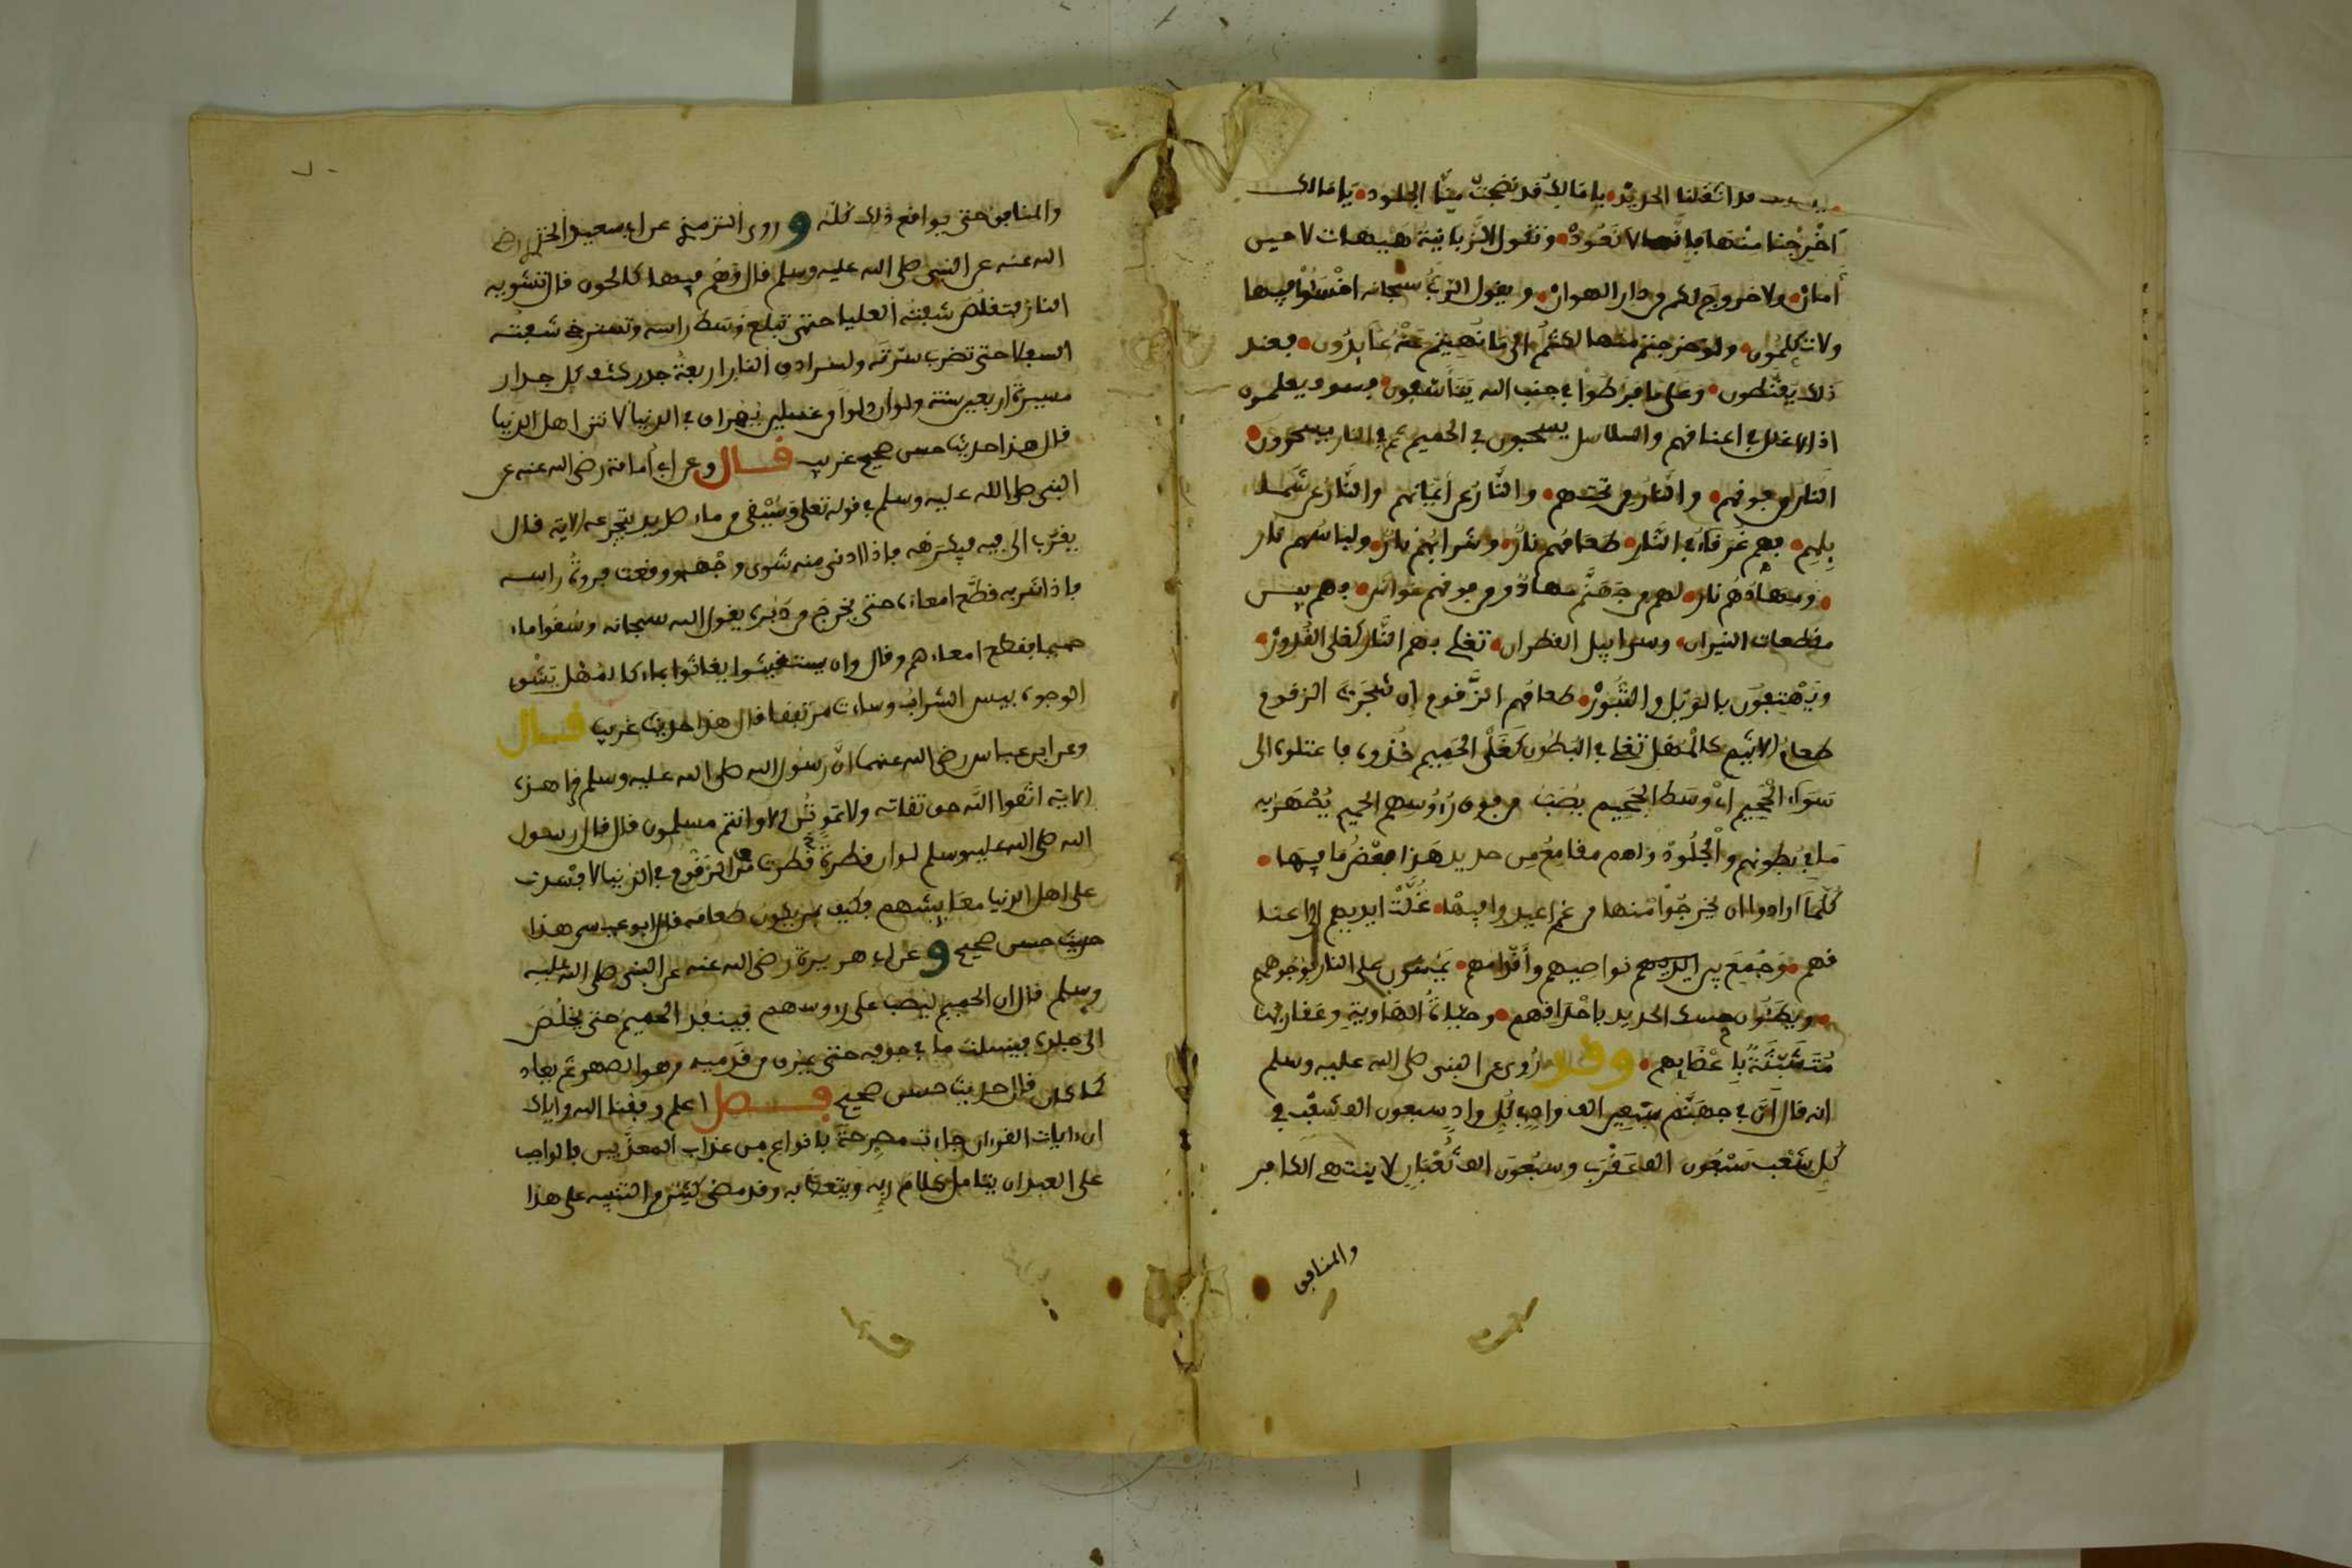 قد اثقلنا الحديد يا مالك قد نضجت منا الجلود يا مالك
اخرجنا منها فإنا لا نعود وتقول الزبانية هيهات لا حين
أمان ولا خروج لكم من دار الهوان ويقول الرب سبحانه اخسئوا فيها
ولا تكلمون ولو خرجتم منها لكنتم الى ما نهيتم عنه عائدون فعند
ذلك يقنطون وعلى ما فرطوا في جنب الله يتأسفون فسوف يعلمون
اذ الاغلل في اعناقهم والسلاسل يسحبون في الحميم ثم في النار يسجرون
النار من فوقهم والنار من تحتهم والنار عن أيمانهم والنار عن شما
يلهم فهم غرقاء في النار طعامهم نار وشرابهم نار ولباسهم نار
ومهادهم نار لهم من جهنم مهاد ومن فوقهم غواش فهم بين
مقطعات النيران وسرابيل القطران تغلي بهم النار كغلي القدور
ويهتفون بالويل والثبور طعامهم الزقوم إن شجرت الزقوم
طعام الاثيم كالمهل تغلي في البطون كغلي الحميم خذوه فاعتلوه الى
سواء الجحيم أي وسط الجحيم يصب من فوق رءوسهم الحميم يصهر به
ما في بطونهم والجلود ولهم مقامع من حديد هذا بعض ما فيها
كلما ارادوا ان يخرجوا منها من غم اعيدوا فيها غلت ايديهم الى اعنا
قهم وجمع بين نواصيهم وأقدامهم يمشون على النار بوجوههم
ويطئون حسك الحديد باحداقهم وحيات الهاوية وعقاربها
متشبثة بأعضايهم وقد روى عن النبي صلى الله عليه وسلم
انه قال ان في جهنم سبعين الف واد في كل واد سبعون الف شعب في
كل شعب سبعون الف عقرب وسبعون الف ثعبان لا ينتهي الكافر
والمنافق
والمنافق حتى يواقع ذلك كله وروى الترمذي عن ابي سعيد الخدري رضي
الله عنه عن النبي صلى الله عليه وسلم قال وهم فيها كالحون قال تشويه
النار فتقلص شفته العليا حتى تبلغ وسط راسه وتسترخي شفته
السفلا حتى تضرب سرته ولسرادق النار اربعة جدر كثف كل جدار
مسيرة اربعين سنة ولو ان دلوا من غسلين يهراق في الدنيا لانتن اهل الدنيا
قال هذا حديث حسن صحيح غريب قال وعن ابي أمامة رضي الله عنه عن
النبي صلى الله عليه وسلم في قوله تعلى ويسقى من ماء صديد يتجرعه الاية قال
يقرب الى فيه فيكرهه فإذا ادنى منه شوى وجهه ووقعت فروة راسه
فإذا شربه قطع امعاءه حتى يخرج من دبره يقول الله سبحانه وسقوا ماء
حميما فقطع امعاءهم وقال وان يستغيثوا يغاثوا بماء كالمهل يشوى
الوجوه بيس الشراب وساءت مرتفقا قال هذا حديث غريب قال
وعن ابن عباس رضي الله عنهما ان رسول الله صلى الله عليه وسلم قرا هذه
الاية اتقوا الله حق تقاته ولا تموتن الا وانتم مسلمون قال قال رسول
الله صلى الله عليه وسلم لو ان قطرة قطرت من الزقوم في الدنيا لافسدت
على اهل الدنيا معايشهم فكيف بمن يكون طعامه قال ابو عيسى هذا
حديث حسن صحيح وعن ابي هريرة رضي الله عنه عن النبي صلى الله عليه
وسلم قال ان الحميم ليصب على رءوسهم فينفذ الحميم حتى يخلص
الى جوفه فيسلت ما في جوفه حتى يمرق من قدميه وهو الصهر ثم يعاد
كما كان قال حديث حسن صحيح فصل اعلم وفقنا الله واياك
ان ءايات القرءان جاءت مصرحة بانواع من عذاب المعذبين فالواجب
على العبد ان يتامل كلام ربه ويتعظ به وقد مضى كثير من التنبيه على هذا